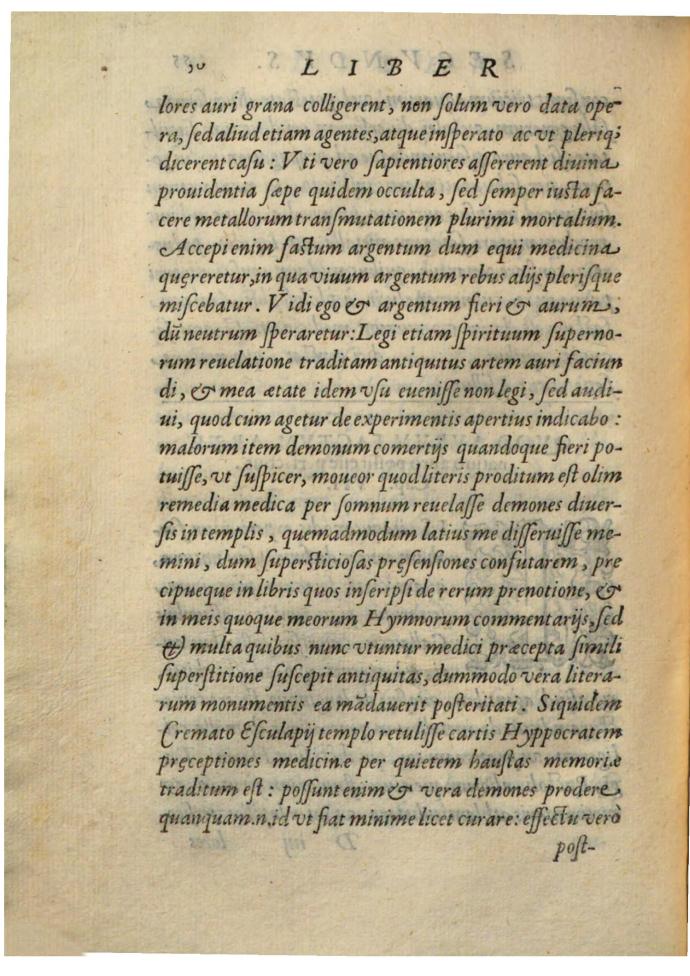 LIBER
lores auri grana colligerent, non solum vero data ope-
ra, sed aliud etiam agentes, atque insperato ac vt pleriq;
dicerent casu: Vti vero sapientiores assererent diuina
prouidentia sæpe quidem occulta, sed semper iusta fa-
cere metallorum transmutationem plurimi mortalium.
Accepi enim factum argentum dum equi medicina
quęreretur, in qua viuum argentum rebus alijs plerisque
miscebatur. Vidi ego & argentum fieri & aurum,
dū neutrum speraretur: Legi etiam spirituum superno-
rum reuelatione traditam antiquitus artem auri faciun
di, & mea ætate idem vsu euenisse non legi, sed audi-
ui, quod cum agetur de experimentis apertius indicabo:
malorum item demonum comertijs quandoque fieri po-
tuisse, vt suspicer, moueor quod literis proditum est olim
remedia medica per somnum reuelasse demones diuer-
sis in templis, quemadmodum latius me disseruisse me-
mini, dum supersticiosas pręsensiones confutarem, pre
cipueque in libris quos inscripsi de rerum prenotione, &
in meis quoque meorum Hymnorum commentarijs, sed
& multa quibus nunc vtuntur medici præcepta simili
superstitione suscepit antiquitas, dummodo vera litera-
rum monumentis ea mādauerit posteritati. Siquidem
Cremato Esculapij templo retulisse cartis Hyppocratem
pręceptiones medicinæ per quietem haustas memoriæ
traditum est: possunt enim & vera demones prodere
quanquam .n. id vt fiat minime licet curare: effectu verò
post-